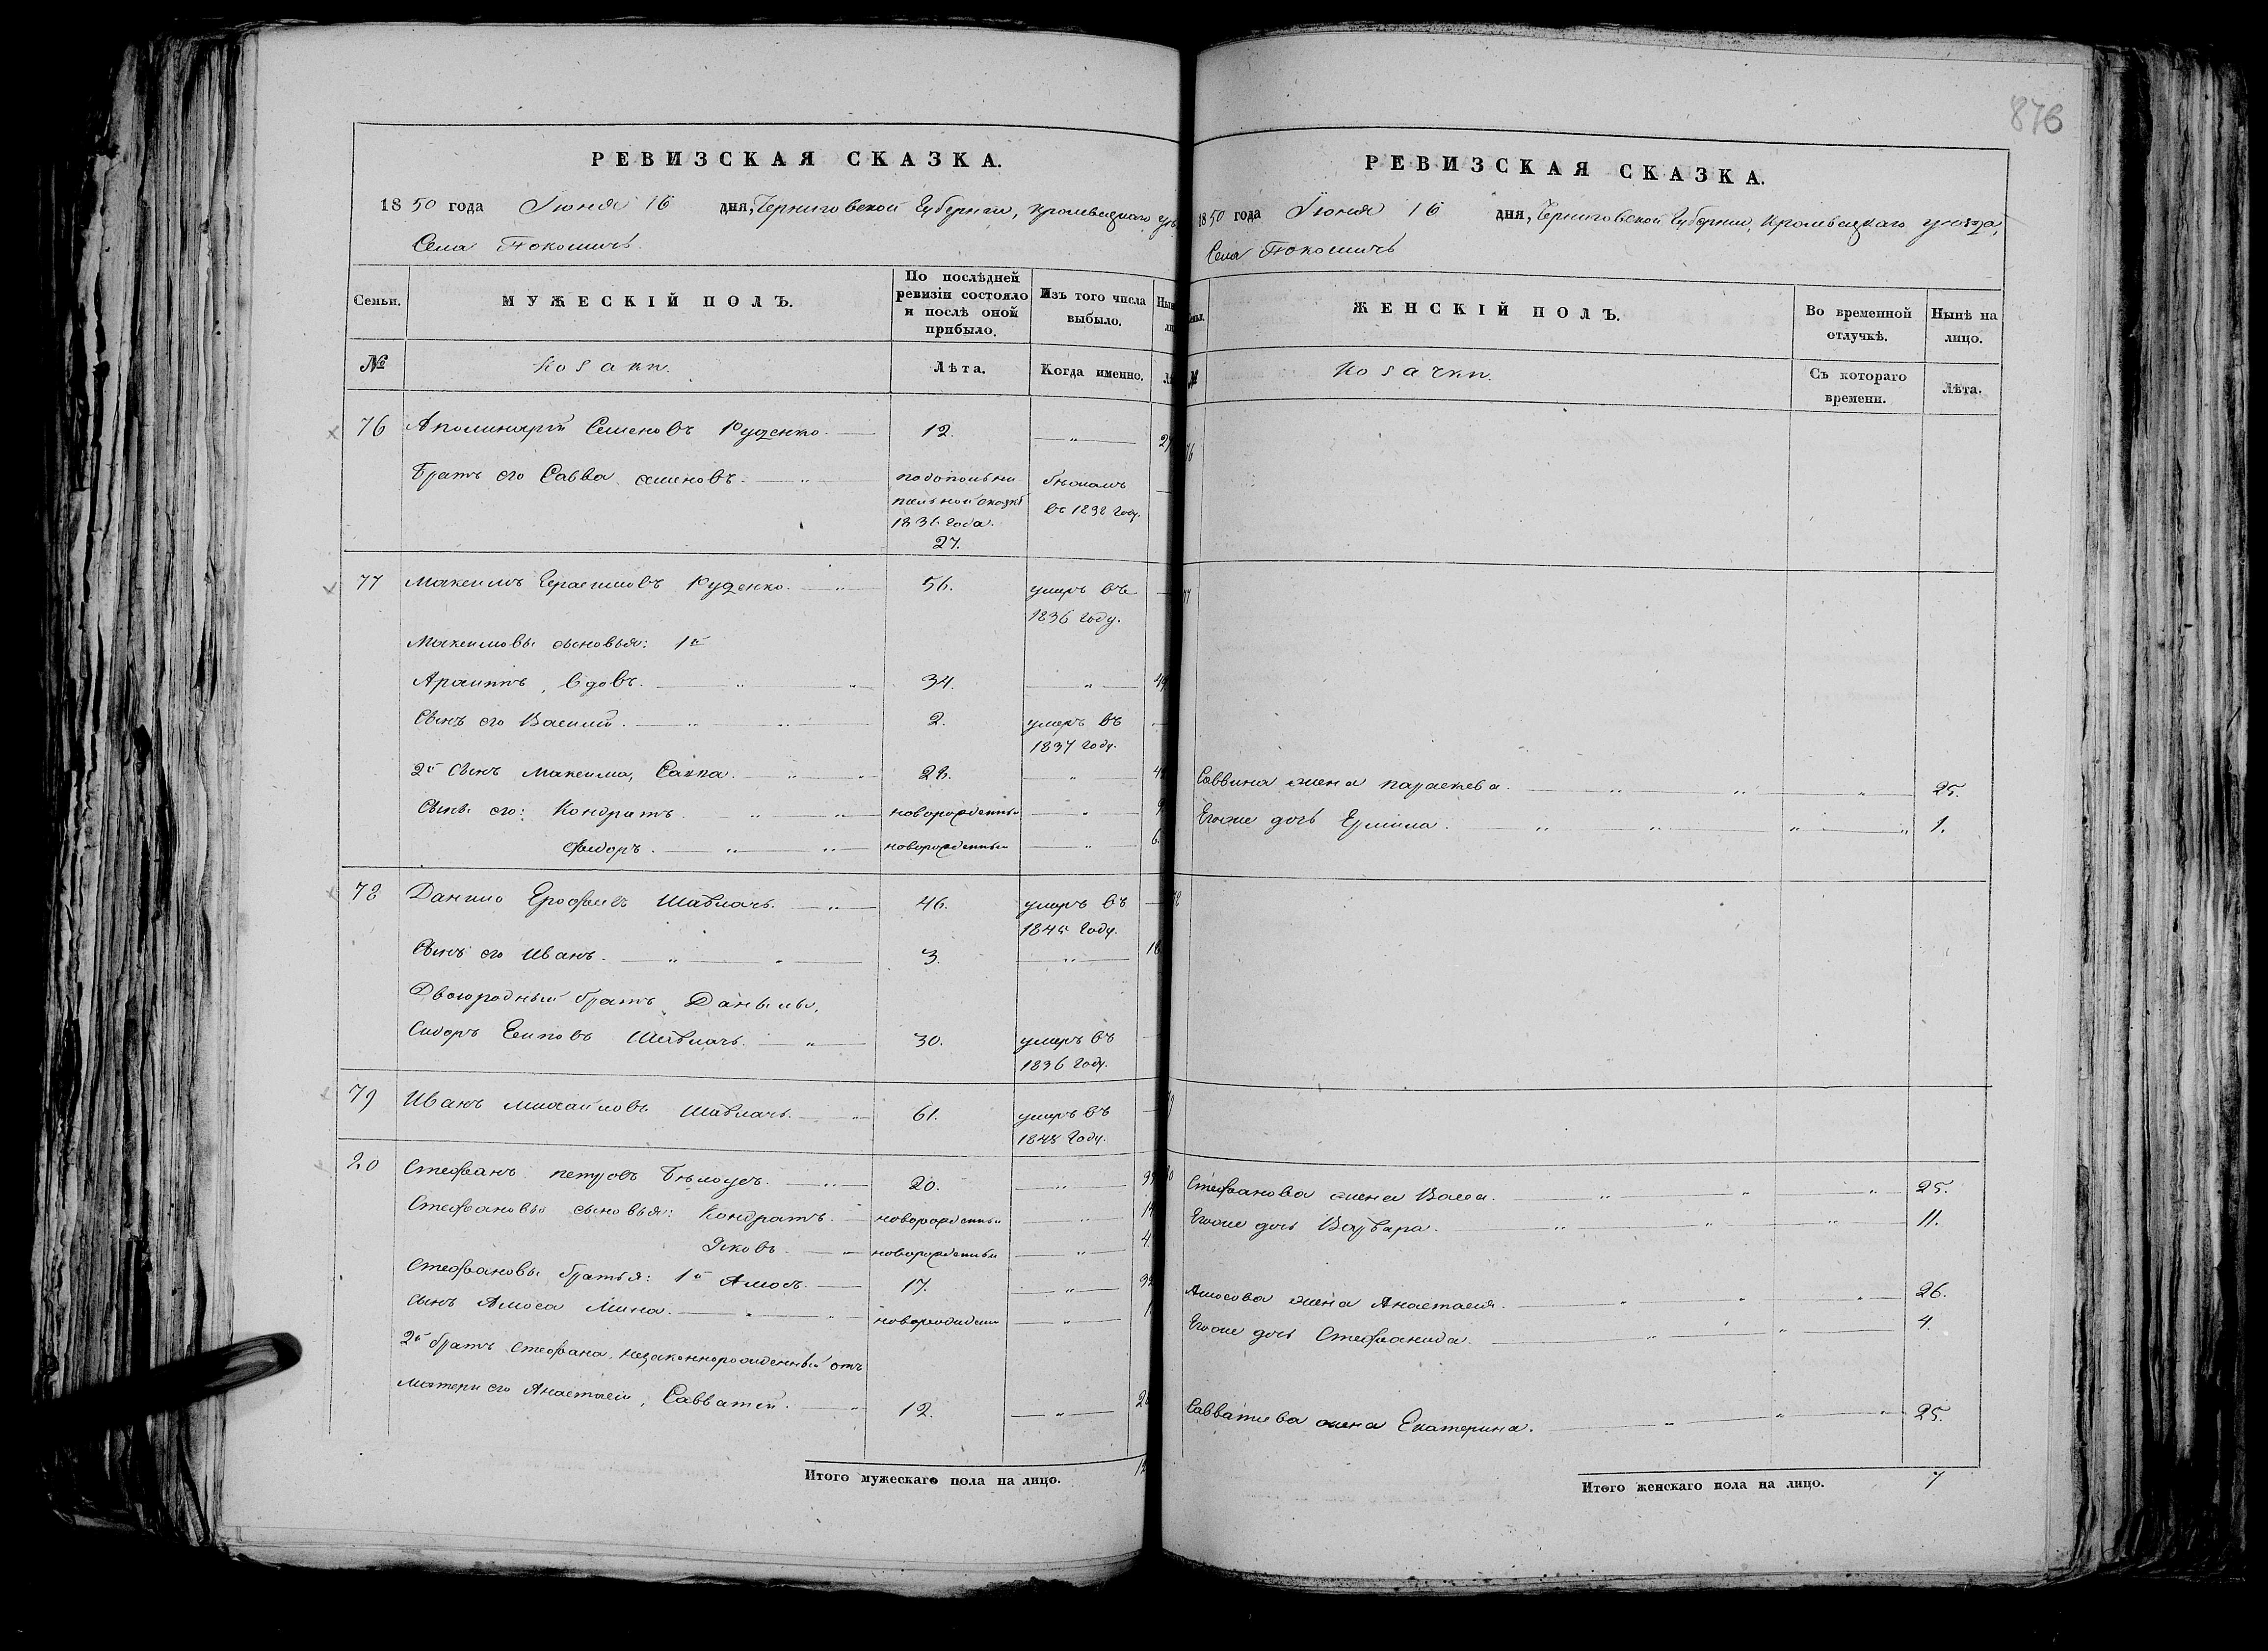 876
РЕВИЗСКАЯ СКАЗКА.
1850 года Іюня 16 дня, Черниговской Губерніи, Кролевецкаго
Села Покошичъ
Семьи.
МУЖЕСКІЙ ПОЛЪ.
По послѣдней ревизіи состояло и послѣ оной прибыло.
Изъ того числа выбыло.
№
Козаки.
Лѣта.
Когда именно.
76 Аполинарій Семеновъ Руденко. 12. "
Братъ его Савва Семеновъ. по дополни
тельной сказкѣ
1836 года.
27.
бѣжалъ
въ 1838 году.
77 Максимъ Герасимовъ Руденко. 56. умеръ въ
1836 году.
Максимовы сыновья: 1й
вдовъ. 34. " 49
Сынъ его Василий. 2. умеръ въ
1837 году.
2й Сынъ Максима, Савва. 28. "
Сыны его: Кондратъ. новорожденный " 9
Федоръ. новорожденный " 6.
78 Данило Ерофѣевъ 46. умеръ въ
1845 году.
Сынъ его Иванъ. 3. " 18
Двоюродный братъ Данилы,
Сидоръ Есиповъ 30. умеръ въ
1836 году.
79 Иванъ Михайловъ 61. умеръ въ
1848 году.
80 Стефанъ Петровъ Бѣлоусъ. 20. " 35
Стефановы сыновья: Кондратъ. новорожденный "
Яковъ. новорожденный " 4.
Стефановы братья: 1й Амосъ. 17. " 32
Сынъ Амоса Мина. новорожденный " 1
2й братъ Стефана, незаконнорожденный отъ
матери его Анастасіи, Савватій. 12. "
Итого мужескаго пола на лицо. 12
РЕВИЗСКАЯ СКАЗКА.
1850 года Іюня 16 дня, Черниговской Губерніи, Кролевецкаго уѣзда,
Села Покошичъ
ЖЕНСКІЙ ПОЛЪ.
Во временной отлучкѣ.
Нынѣ на лицо.
№
Козачки.
Съ котораго времени.
Лѣта.
76
77
Саввина жена Параскева. " 25.
Егоже дочь " 1.
78
80 Стефанова жена Васса. " 25.
Егоже дочь Варвара. " 11.
Амосова жена Анастасія. " 26.
Егоже дочь Стефанида. " 4.
Савватіева жена Екатерина. " 25.
Итого женскаго пола на лицо. 7